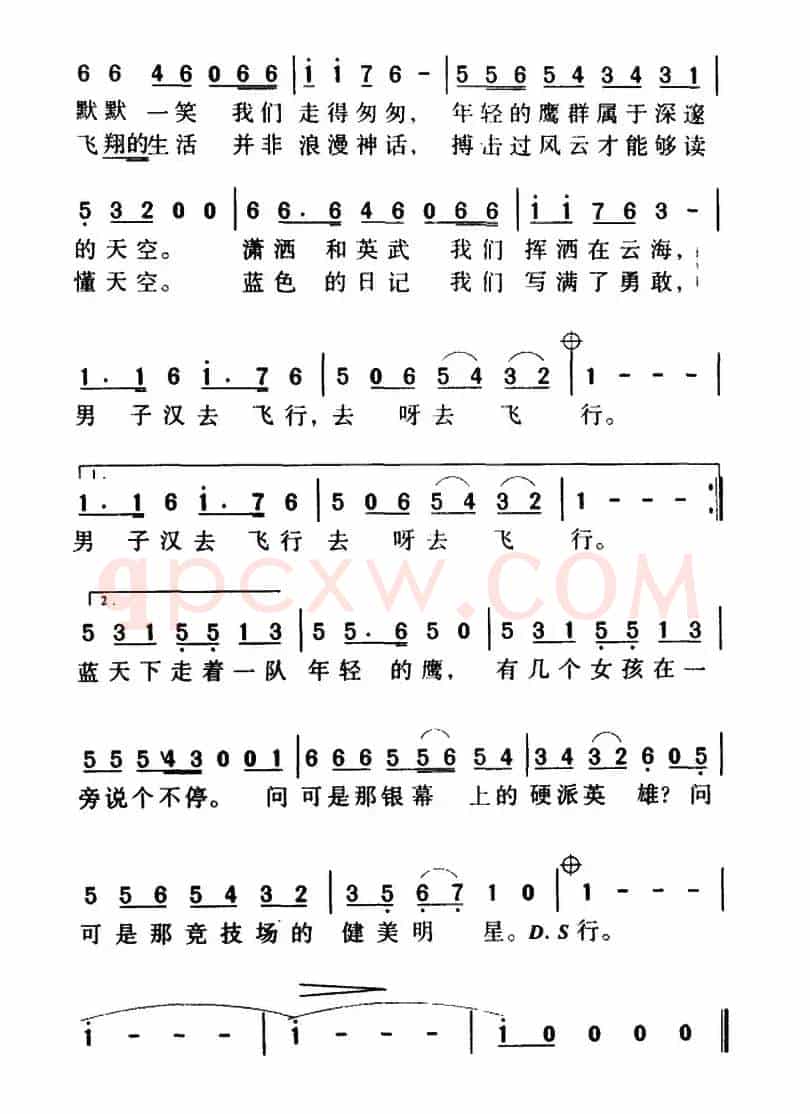 6 6 4 6 0 6 6 | i i 7 6 - | 5 5 6 5 4 3 4 3 1
默默 一笑 我们 走得匆匆， 年轻的鹰群属于深邃
飞翔的生活 并非 浪漫神话， 搏击过风云才能够读
5 3 2 0 0 | 6 6. 6 4 6 0 6 6 | i i 7 6 3 -
的天空。 潇洒 和英武 我们 挥洒在云海，
懂天空。 蓝色 的日记 我们 写满了勇敢，
1. 1 6 i. 7 6 | 5 0 6 5 4 3 2 | 1 - - -
男 子汉去 飞行，去 呀去 飞 行。
1.
1. 1 6 i. 7 6 | 5 0 6 5 4 3 2 | 1 - - - :||
男 子汉去 飞行去 呀去 飞 行。
qpcxw.COM
2.
5 3 1 5 5 1 3 | 5 5. 6 5 0 | 5 3 1 5 5 1 3
蓝天下走着一队 年轻 的鹰， 有几个女孩在一
5 5 5 4 3 0 0 1 | 6 6 6 5 5 6 5 4 | 3 4 3 2 6 0 5
旁说个不停。 问可是那银幕 上的硬派英 雄？问
5 5 6 5 4 3 2 | 3 5 6 7 1 0 | 1 - - -
可是那竞技场的 健美明 星。D.S行。
i - - - | i - - - | i 0 0 0 0 ||